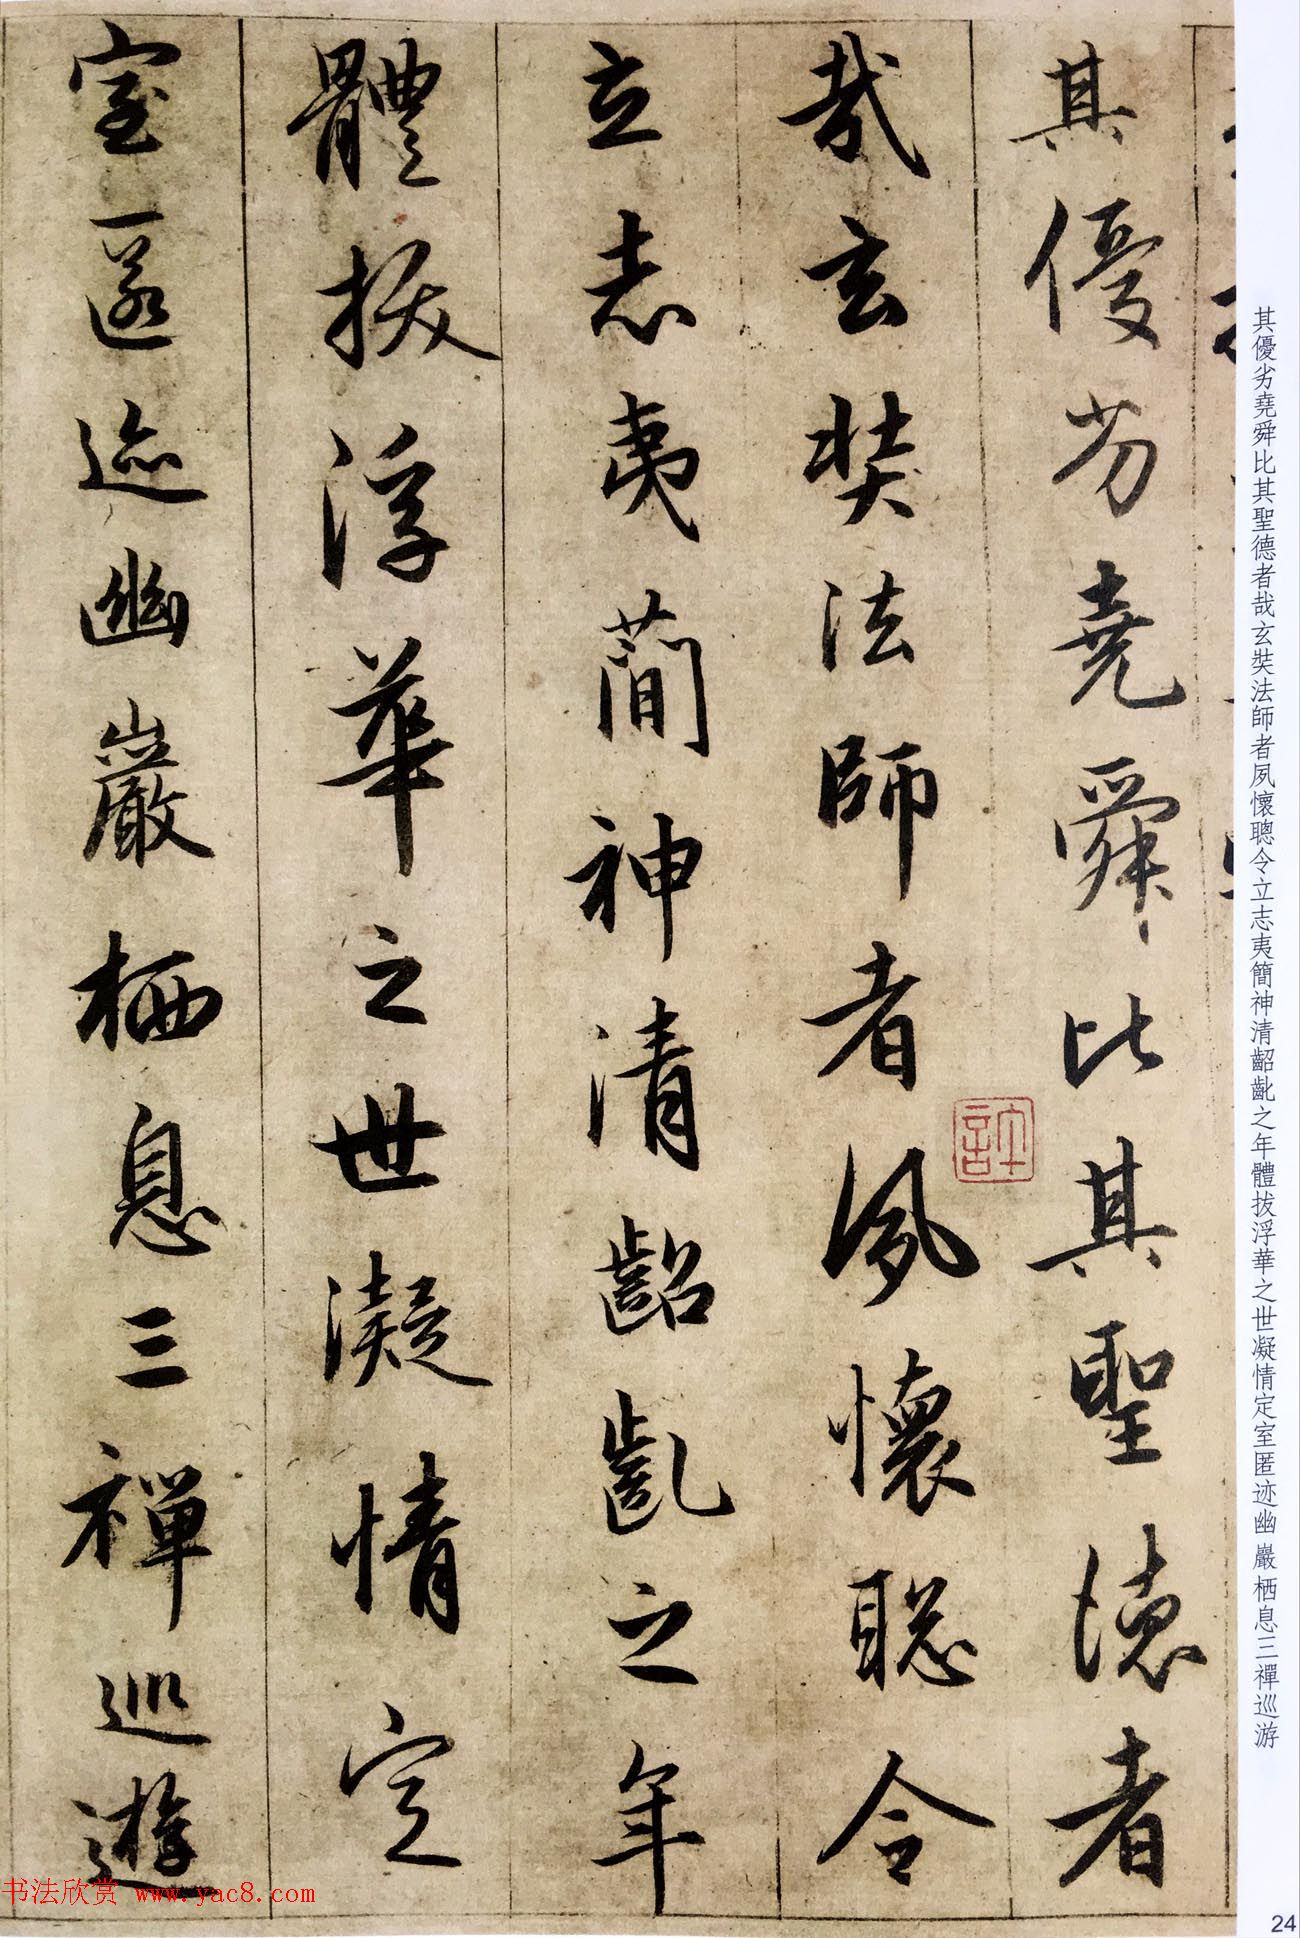 其優劣堯舜比其聖德者
哉玄奘法師者夙懷聰令
立志夷簡神清齠齔之年
體拔浮華之世凝情定
室匿迹幽巖栖息三禪巡遊
許
其優劣堯舜比其聖德者哉玄奘法師者夙懷聰令立志夷簡神清齠齔之年體拔浮華之世凝情定室匿迹幽巖栖息三禪巡游
24
书法欣赏 www.yac8.com